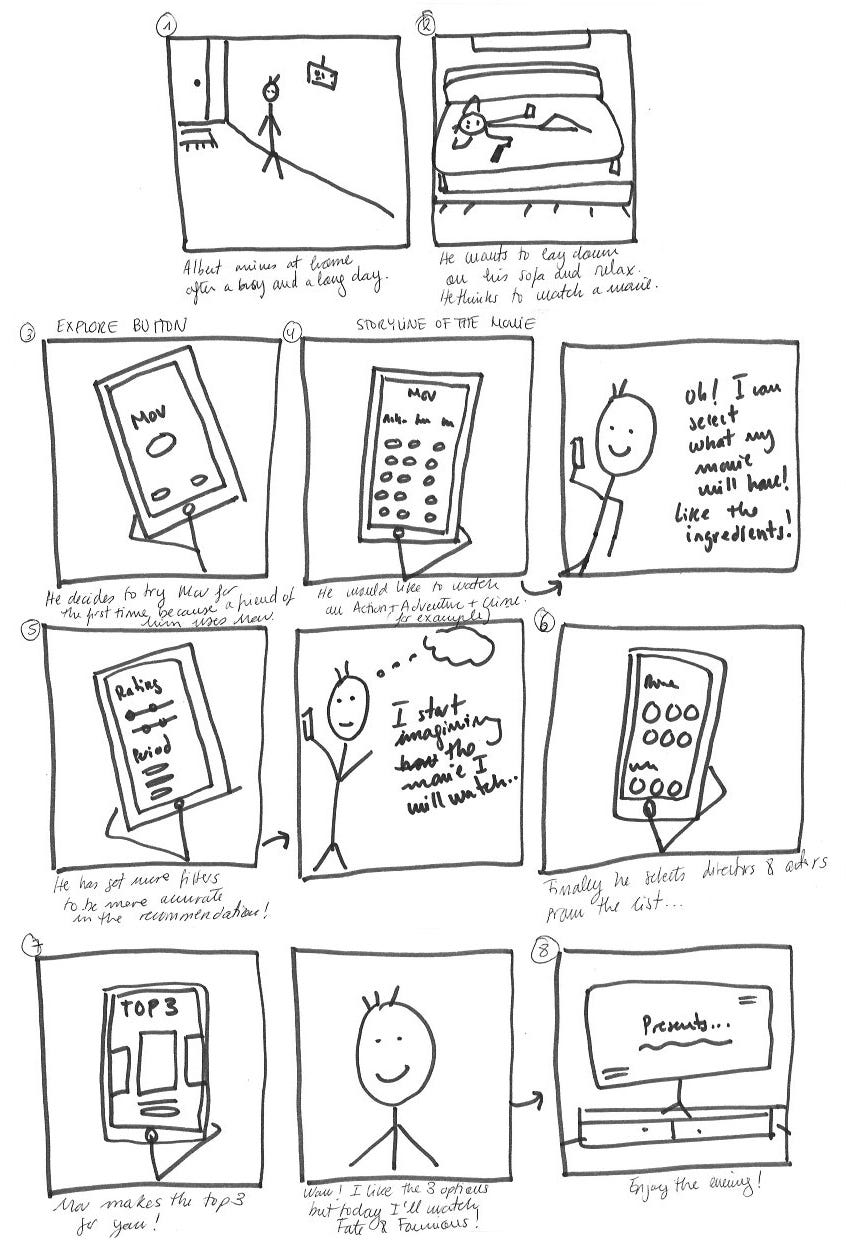 1
Albert arrives at home
after a busy and a long day.
2
He wants to lay down
on his sofa and relax.
He thinks to watch a movie.
3 EXPLORE BUTTON
MOV
He decides to try Mov for
the first time, because a friend of
him uses Mov.
4 STORYLINE OF THE MOVIE
MOV
He would like to watch
an Action + Adventure + Crime.
(for example)
Oh! I can
select
what my
movie
will have!
Like the
ingredients!
5
Rating
Period
He has got more filters
to be more accurate
in the recommendation!
I start
imagining
how the
movie I
will watch..
6
Finally he selects directors & actors
from the list...
7
TOP 3
Mov makes the top 3
for you!
Wow! I like the 3 options
but today I'll watch
Fate & Fourious!
8
Presents...
Enjoy the evening!